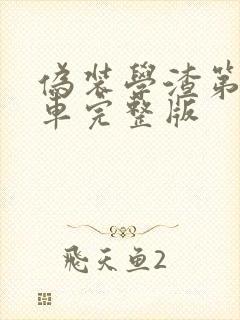 偽裝學渣第
車完整版
飛天魚2